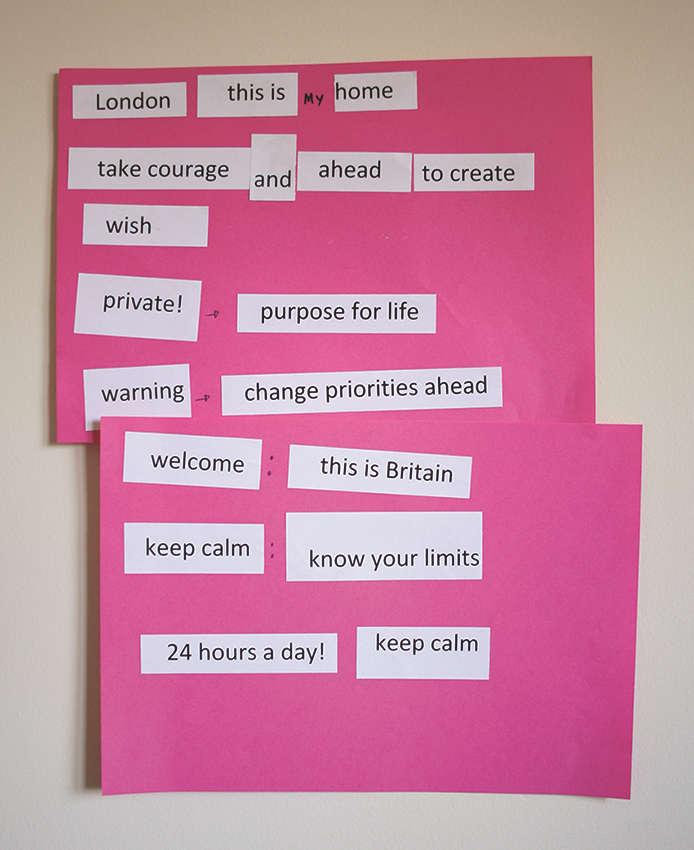 London this is My home
take courage and ahead to create
wish
private! → purpose for life
warning → change priorities ahead
welcome : this is Britain
keep calm : know your limits
24 hours a day! keep calm